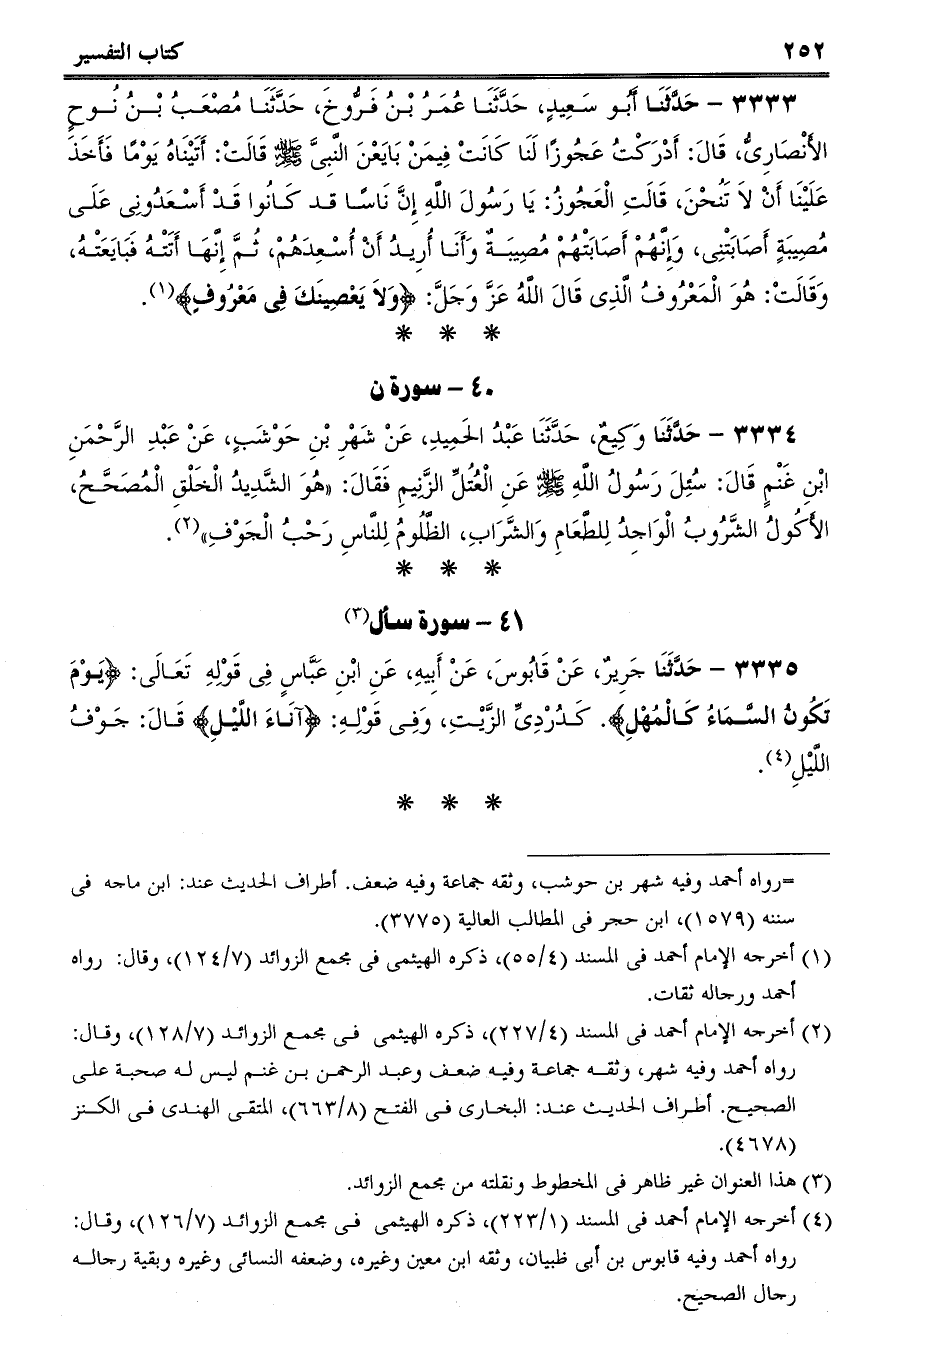 ٢٥٢ كتاب التفسير
٣٣٣٣ – حَدَّثَنَا أَبُو سَعِيدٍ، حَدَّثَنَا عُمَرُ بْنُ فَرُّوخَ، حَدَّثَنَا مُصْعَبُ بْنُ نُوحٍ
الأَنْصَارِىُّ، قَالَ: أَدْرَكْتُ عَجُوزًا لَنَا كَانَتْ فِيمَنْ بَايَعْنَ النَّبِىَّ ﷺ قَالَتْ: أَتَيْنَاهُ يَوْمًا فَأَخَذَ
عَلَيْنَا أَنْ لاَ تَنُحْنَ، قَالَتِ الْعَجُوزُ: يَا رَسُولَ اللَّهِ إِنَّ نَاسًا قد كَانُوا قَدْ أَسْعَدُونِى عَلَى
مُصِيبَةٍ أَصَابَتْنِى، وَإِنَّهُمْ أَصَابَتْهُمْ مُصِيبَةٌ وَأَنَا أُرِيدُ أَنْ أُسْعِدَهُمْ، ثُمَّ إِنَّهَا أَتَتْهُ فَبَايَعَتْهُ،
وَقَالَتْ: هُوَ الْمَعْرُوفُ الَّذِى قَالَ اللَّهُ عَزَّ وَجَلَّ: ﴿وَلاَ يَعْصِينَكَ فِى مَعْرُوفٍ﴾(١).
* * *
٤٠ – سورة ن
٣٣٣٤ – حَدَّثَنَا وَكِيعٌ، حَدَّثَنَا عَبْدُ الحَمِيدِ، عَنْ شَهْرِ بْنِ حَوْشَبٍ، عَنْ عَبْدِ الرَّحْمَنِ
ابْنِ غَنْمٍ قَالَ: سُئِلَ رَسُولُ اللَّهِ ﷺ عَنِ الْعُتُلِّ الزَّنِيمِ فَقَالَ: «هُوَ الشَّدِيدُ الْخَلْقِ الْمُصَحَّحُ،
الأَكُولُ الشَّرُوبُ الْوَاجِدُ لِلطَّعَامِ وَالشَّرَابِ، الظَّلُومُ لِلنَّاسِ رَحْبُ الْجَوْفِ»(٢).
* * *
٤١ – سورة سأل(٣)
٣٣٣٥ – حَدَّثَنَا جَرِيرٌ، عَنْ قَابُوسَ، عَنْ أَبِيهِ، عَنِ ابْنِ عَبَّاسٍ فِى قَوْلِهِ تَعَالَى: ﴿يَوْمَ
تَكُونُ السَّمَاءُ كَالْمُهْلِ﴾. كَدُرْدِىِّ الزَّيْتِ، وَفِى قَوْلِهِ: ﴿آنَاءَ اللَّيْلِ﴾ قَالَ: جَوْفُ
اللَّيْلِ(٤).
* * *
=رواه أحمد وفيه شهر بن حوشب، وثقه جماعة وفيه ضعف. أطراف الحديث عند: ابن ماجه فى
سننه (١٥٧٩)، ابن حجر فى المطالب العالية (٣٧٧٥).
(١) أخرجه الإمام أحمد فى المسند (٥٥/٤)، ذكره الهيثمى فى مجمع الزوائد (١٢٤/٧)، وقال: رواه
أحمد ورجاله ثقات.
(٢) أخرجه الإمام أحمد فى المسند (٢٢٧/٤)، ذكره الهيثمى فى مجمع الزوائد (١٢٨/٧)، وقال:
رواه أحمد وفيه شهر، وثقه جماعة وفيه ضعف وعبد الرحمن بن غنم ليس له صحبة على
الصحيح. أطراف الحديث عند: البخارى فى الفتح (٦٦٣/٨)، المتقى الهندى فى الكنز
(٤٦٧٨).
(٣) هذا العنوان غير ظاهر فى المخطوط ونقلته من مجمع الزوائد.
(٤) أخرجه الإمام أحمد فى المسند (٢٢٣/١)، ذكره الهيثمى فى مجمع الزوائد (١٢٦/٧)، وقال:
رواه أحمد وفيه قابوس بن أبى ظبيان، وثقه ابن معين وغيره، وضعفه النسائى وغيره وبقية رجاله
رجال الصحيح.